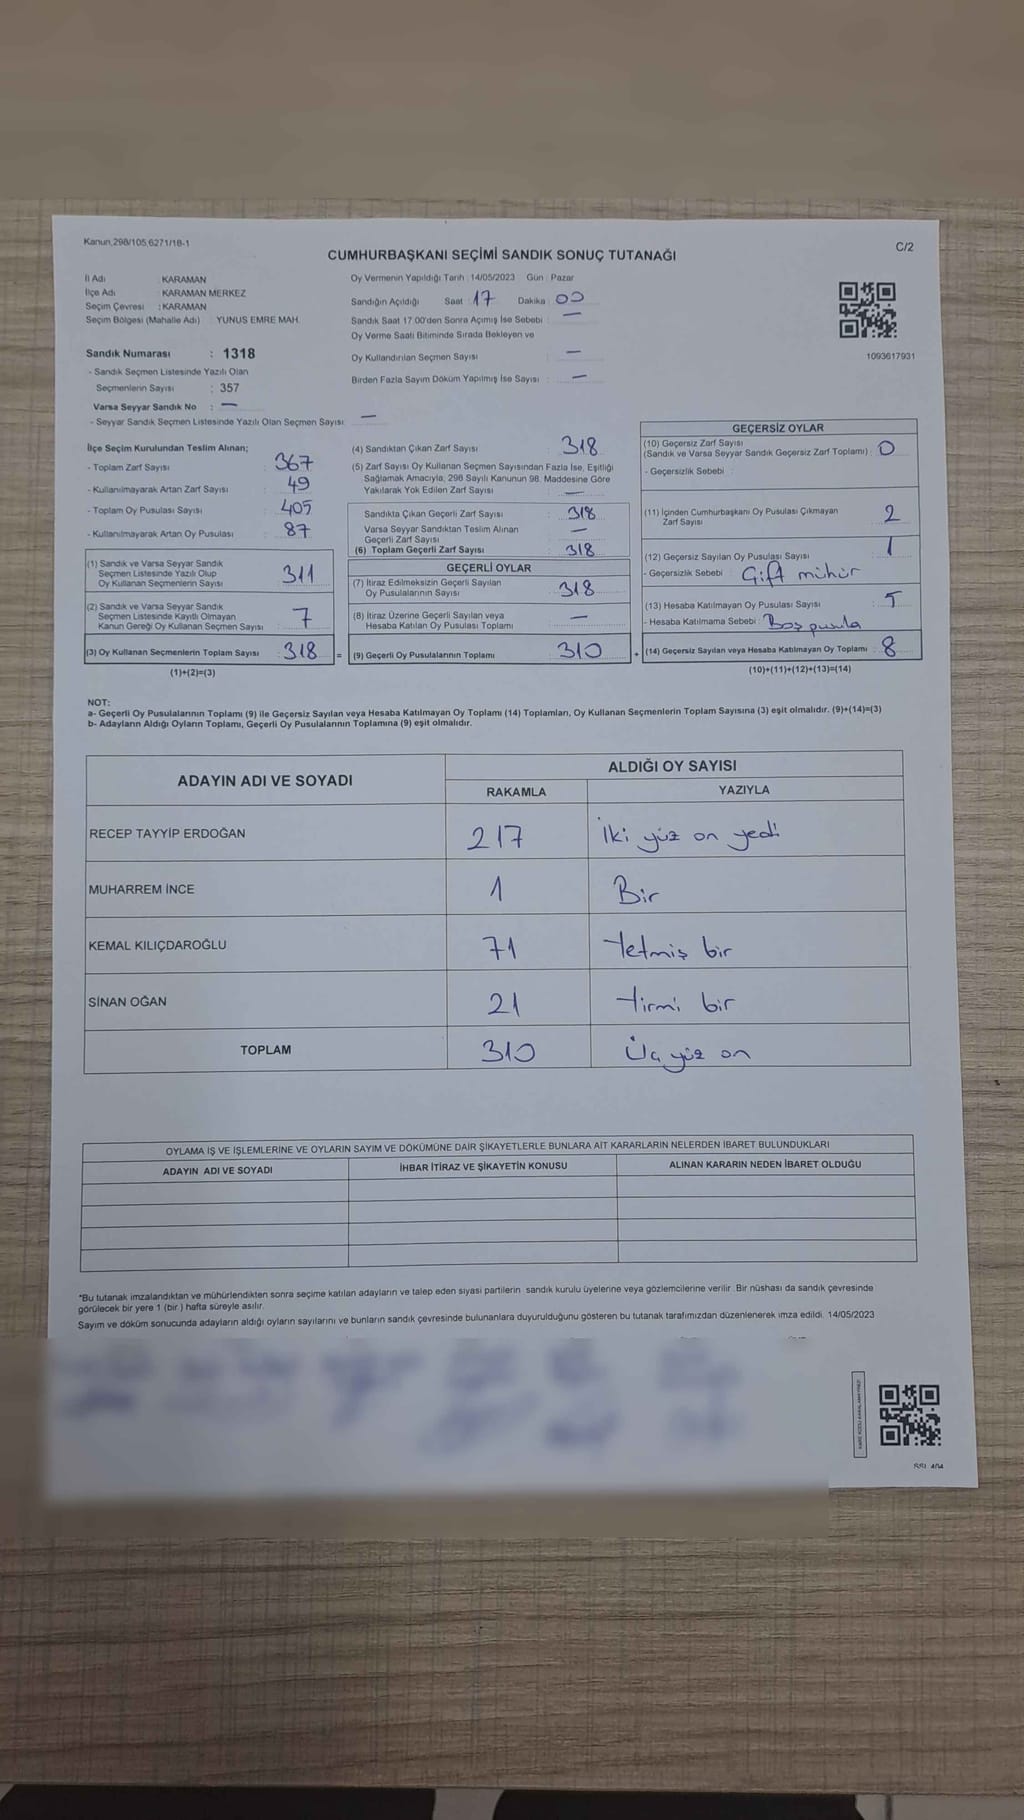 Kanun,298/105,6271/18-1
C/2
CUMHURBAŞKANI SEÇİMİ SANDIK SONUÇ TUTANAĞI
İl Adı : KARAMAN
İlçe Adı : KARAMAN MERKEZ
Seçim Çevresi : KARAMAN
Seçim Bölgesi (Mahalle Adı) : YUNUS EMRE MAH.
Sandık Numarası : 1318
- Sandık Seçmen Listesinde Yazılı Olan
Seçmenlerin Sayısı : 357
Varsa Seyyar Sandık No : —
- Seyyar Sandık Seçmen Listesinde Yazılı Olan Seçmen Sayısı: —
Oy Vermenin Yapıldığı Tarih : 14/05/2023 Gün : Pazar
Sandığın Açıldığı Saat : 17 Dakika : 00
Sandık Saat 17.00'den Sonra Açımış İse Sebebi : —
Oy Verme Saati Bitiminde Sırada Bekleyen ve
Oy Kullandırılan Seçmen Sayısı : —
Birden Fazla Sayım Döküm Yapılmış İse Sayısı : —
1093617931
İlçe Seçim Kurulundan Teslim Alınan;
- Toplam Zarf Sayısı : 367
- Kullanılmayarak Artan Zarf Sayısı : 49
- Toplam Oy Pusulası Sayısı : 405
- Kullanılmayarak Artan Oy Pusulası : 87
(1) Sandık ve Varsa Seyyar Sandık
Seçmen Listesinde Yazılı Olup
Oy Kullanan Seçmenlerin Sayısı : 311
(2) Sandık ve Varsa Seyyar Sandık
Seçmen Listesinde Kayıtlı Olmayan
Kanun Gereği Oy Kullanan Seçmen Sayısı : 7
(3) Oy Kullanan Seçmenlerin Toplam Sayısı : 318 =
(1)+(2)=(3)
(4) Sandıktan Çıkan Zarf Sayısı : 318
(5) Zarf Sayısı Oy Kullanan Seçmen Sayısından Fazla İse, Eşitliği
Sağlamak Amacıyla, 298 Sayılı Kanunun 98. Maddesine Göre
Yakılarak Yok Edilen Zarf Sayısı : —
Sandıkta Çıkan Geçerli Zarf Sayısı : 318
Varsa Seyyar Sandıktan Teslim Alınan
Geçerli Zarf Sayısı : —
(6) Toplam Geçerli Zarf Sayısı : 318
GEÇERLİ OYLAR
(7) İtiraz Edilmeksizin Geçerli Sayılan
Oy Pusulalarının Sayısı : 318
(8) İtiraz Üzerine Geçerli Sayılan veya
Hesaba Katılan Oy Pusulası Toplamı : —
(9) Geçerli Oy Pusulalarının Toplamı : 310 +
GEÇERSİZ OYLAR
(10) Geçersiz Zarf Sayısı
(Sandık ve Varsa Seyyar Sandık Geçersiz Zarf Toplamı) : 0
- Geçersizlik Sebebi :
(11) İçinden Cumhurbaşkanı Oy Pusulası Çıkmayan
Zarf Sayısı : 2
(12) Geçersiz Sayılan Oy Pusulası Sayısı : 1
- Geçersizlik Sebebi : Çift mühür
(13) Hesaba Katılmayan Oy Pusulası Sayısı : 5
- Hesaba Katılmama Sebebi : Boş pusula
(14) Geçersiz Sayılan veya Hesaba Katılmayan Oy Toplamı : 8
(10)+(11)+(12)+(13)=(14)
NOT:
a- Geçerli Oy Pusulalarının Toplamı (9) ile Geçersiz Sayılan veya Hesaba Katılmayan Oy Toplamı (14) Toplamları, Oy Kullanan Seçmenlerin Toplam Sayısına (3) eşit olmalıdır. (9)+(14)=(3)
b- Adayların Aldığı Oyların Toplamı, Geçerli Oy Pusulalarının Toplamına (9) eşit olmalıdır.
ADAYIN ADI VE SOYADI
ALDIĞI OY SAYISI
RAKAMLA YAZIYLA
RECEP TAYYİP ERDOĞAN 217 İki yüz on yedi
MUHARREM İNCE 1 Bir
KEMAL KILIÇDAROĞLU 71 Yetmiş bir
SİNAN OĞAN 21 Yirmi bir
TOPLAM 310 Üç yüz on
OYLAMA İŞ VE İŞLEMLERİNE VE OYLARIN SAYIM VE DÖKÜMÜNE DAİR ŞİKAYETLERLE BUNLARA AİT KARARLARIN NELERDEN İBARET BULUNDUKLARI
ADAYIN ADI VE SOYADI İHBAR İTİRAZ VE ŞİKAYETİN KONUSU ALINAN KARARIN NEDEN İBARET OLDUĞU
*Bu tutanak imzalandıktan ve mühürlendikten sonra seçime katılan adayların ve talep eden siyasi partilerin sandık kurulu üyelerine veya gözlemcilerine verilir. Bir nüshası da sandık çevresinde
görülecek bir yere 1 (bir) hafta süreyle asılır.
Sayım ve döküm sonucunda adayların aldığı oyların sayılarını ve bunların sandık çevresinde bulunanlara duyurulduğunu gösteren bu tutanak tarafımızdan düzenlenerek imza edildi. 14/05/2023